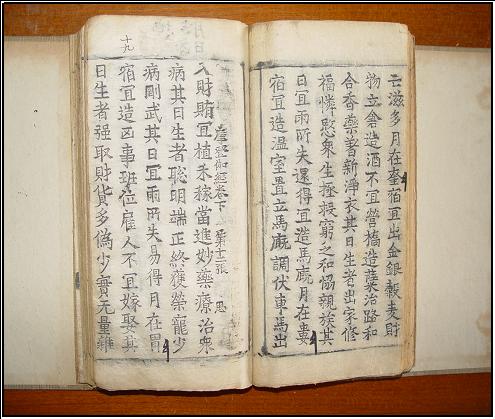 云滋多月在奎宿宜出金銀穀麦財
物立倉造酒不宜營橋造薩治路和
合香藥著新淨衣其日生者出家修
福憐愍衆生拯救窮乏和恊親族其
日宜雨所失還得宜造馬廐月在婁
宿宜造溫室置立馬廐調伏車馬出
登伽經卷下 第十二張 思
入財賄宜植禾稼當進妙藥療治衆
病其日生者聡明端正終獲榮寵少
病剛武其日宜雨所失易得月在胃
宿宜造凶事班位雇人不宜嫁娶其
日生者强取財貨多偽少實无量雜
十九